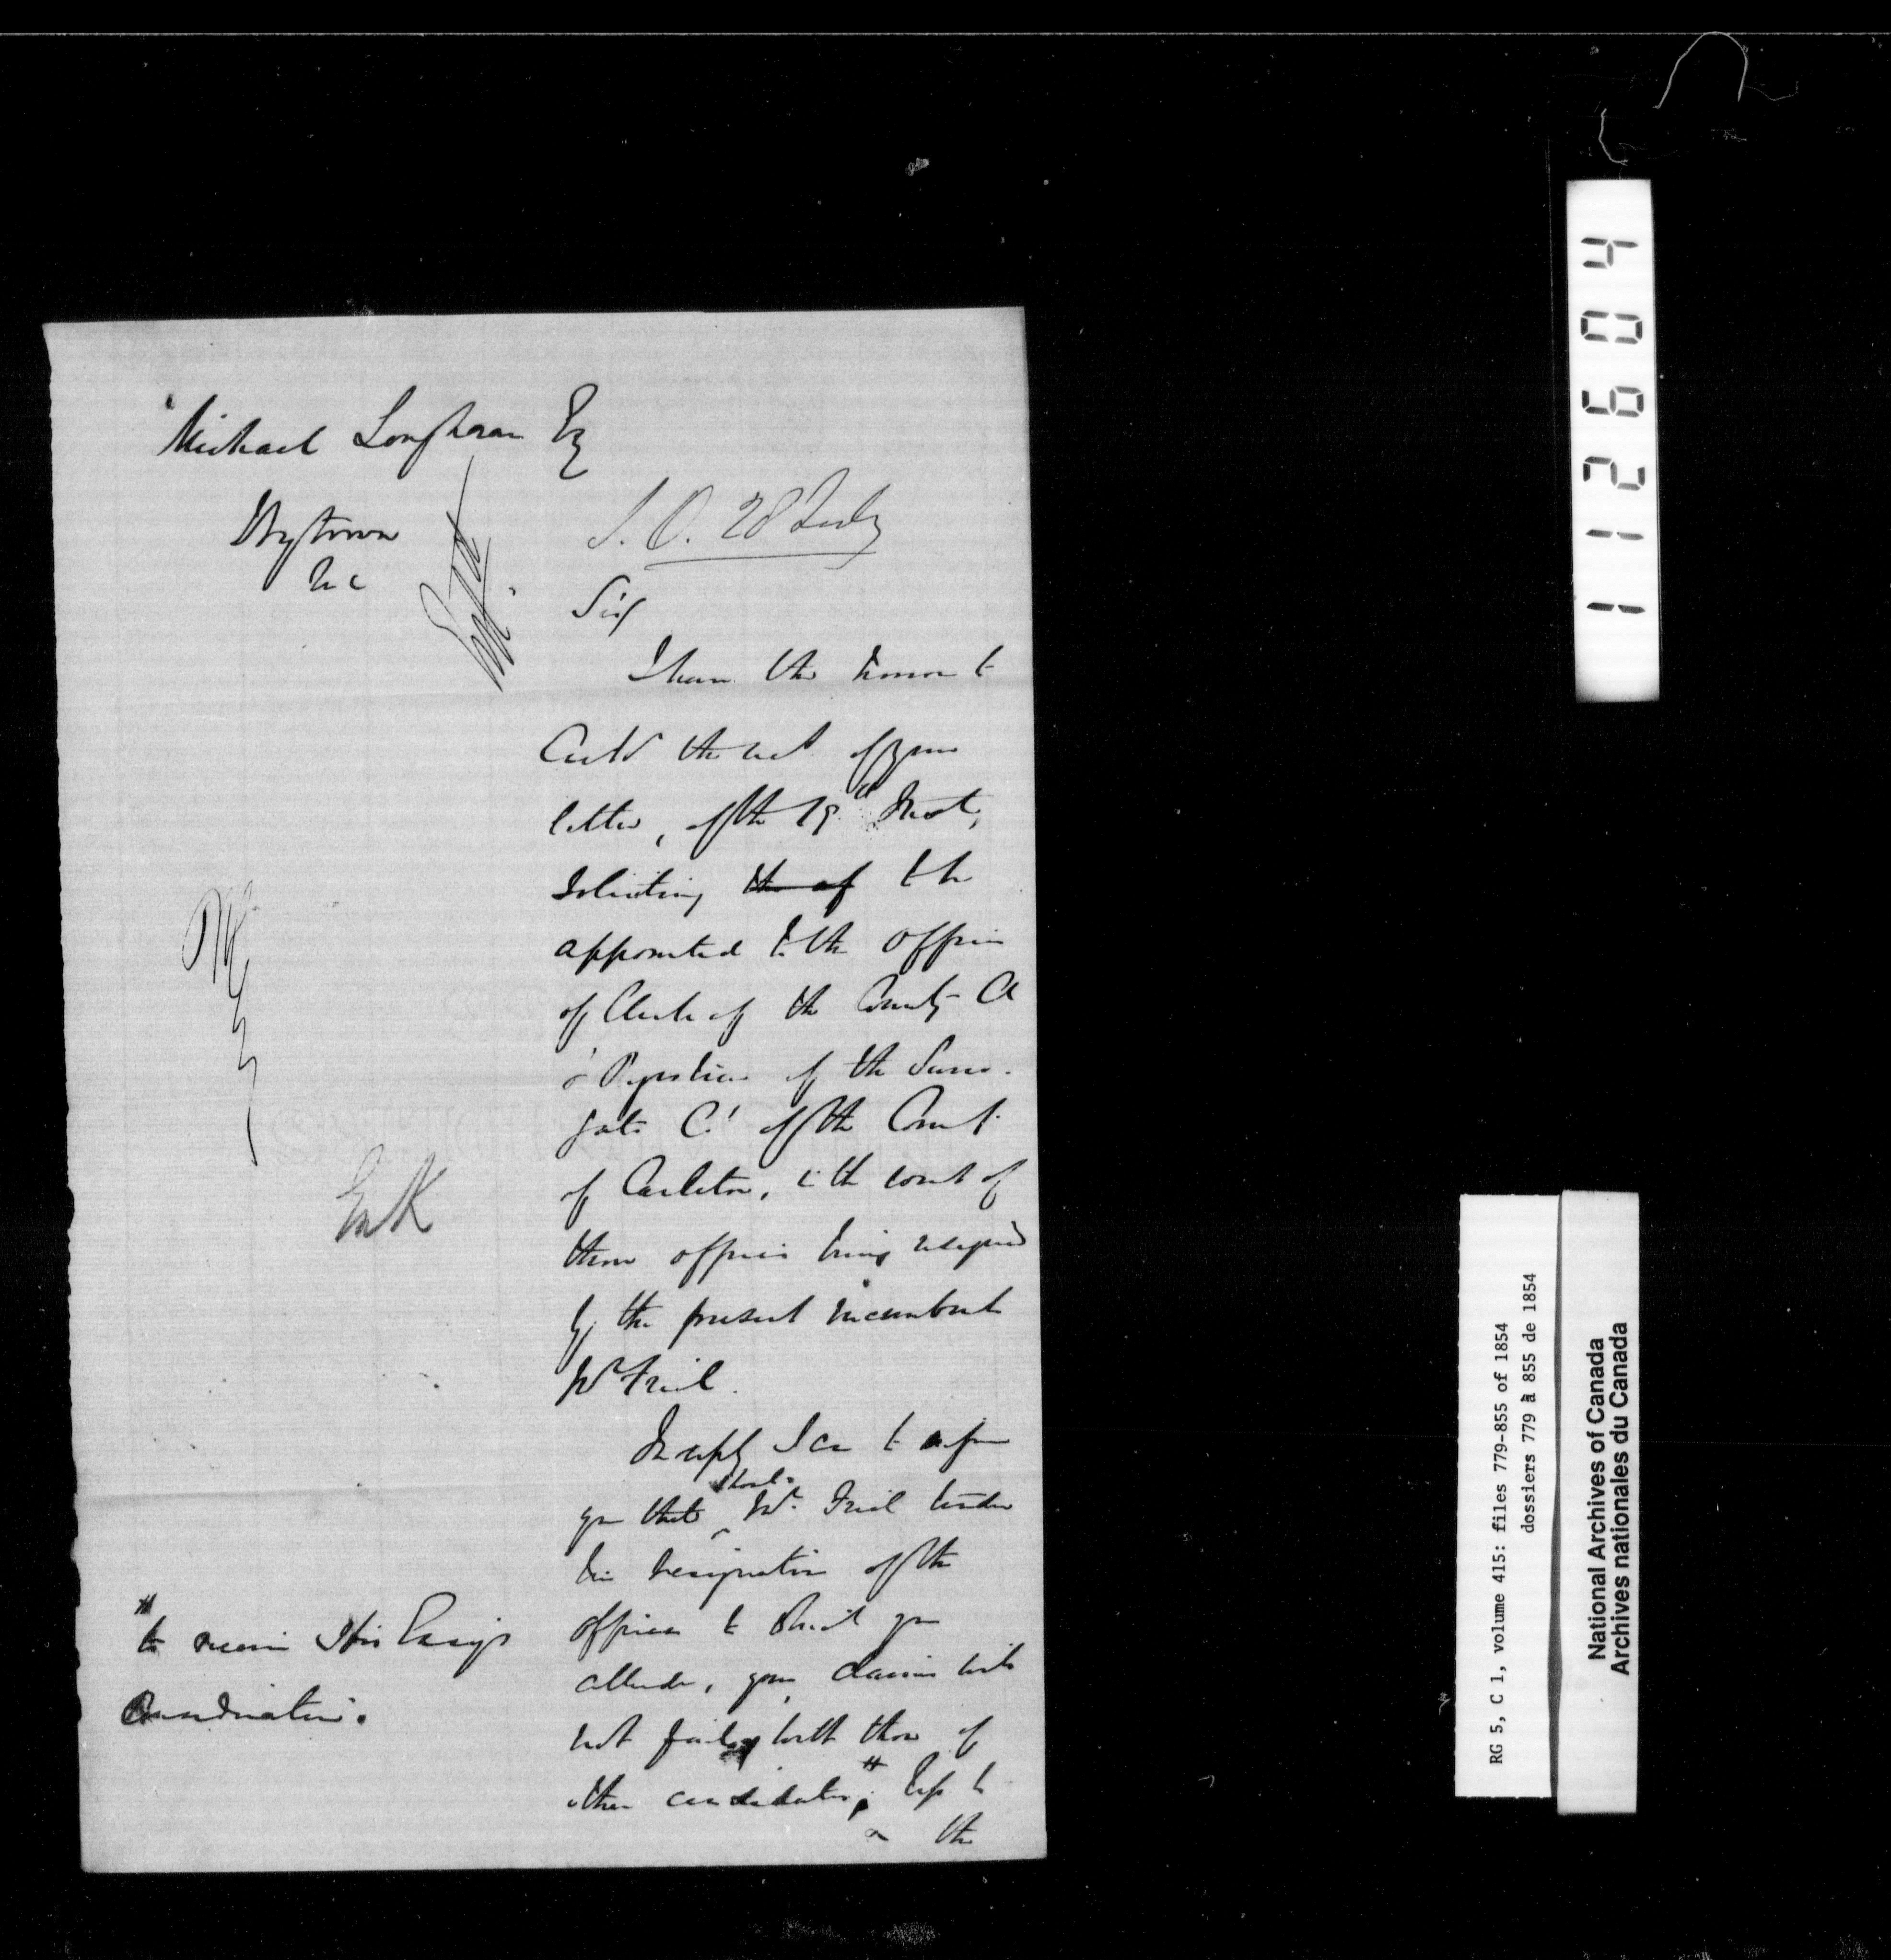 Michael Loughran Esq
Bytown
U C
S. O. 28 July
Sir
I have the honor to
Ackd the rect of your
letter, of the 19th Inst,
soliciting the of to be
appointed to the office
of Clerk of the County Ct
& Registrar of the Surro-
gate Ct of the County
of Carleton, in the event of
these offices being resigned
by the present incumbent
Mr Friel.
In reply I am to inform
you that should Mr Friel tender
his resignation of the
offices to which you
allude, your claims will
not fail with those of
other candidates # Up to
the
# to receive His Excys
Consideration.
EntK
112604
RG 5, C 1, volume 415: files 779-855 of 1854
dossiers 779 à 855 de 1854
National Archives of Canada
Archives nationales du Canada